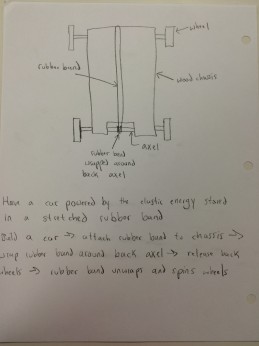 wheel
rubber band
wood chassis
axel
rubber band
wrapped around
back axel
Have a car powered by the elastic energy stored
in a stretched rubber band
Build a car → attach rubber band to chassis →
wrap rubber band around back axel → release back
wheels → rubber band unwraps and spins wheels